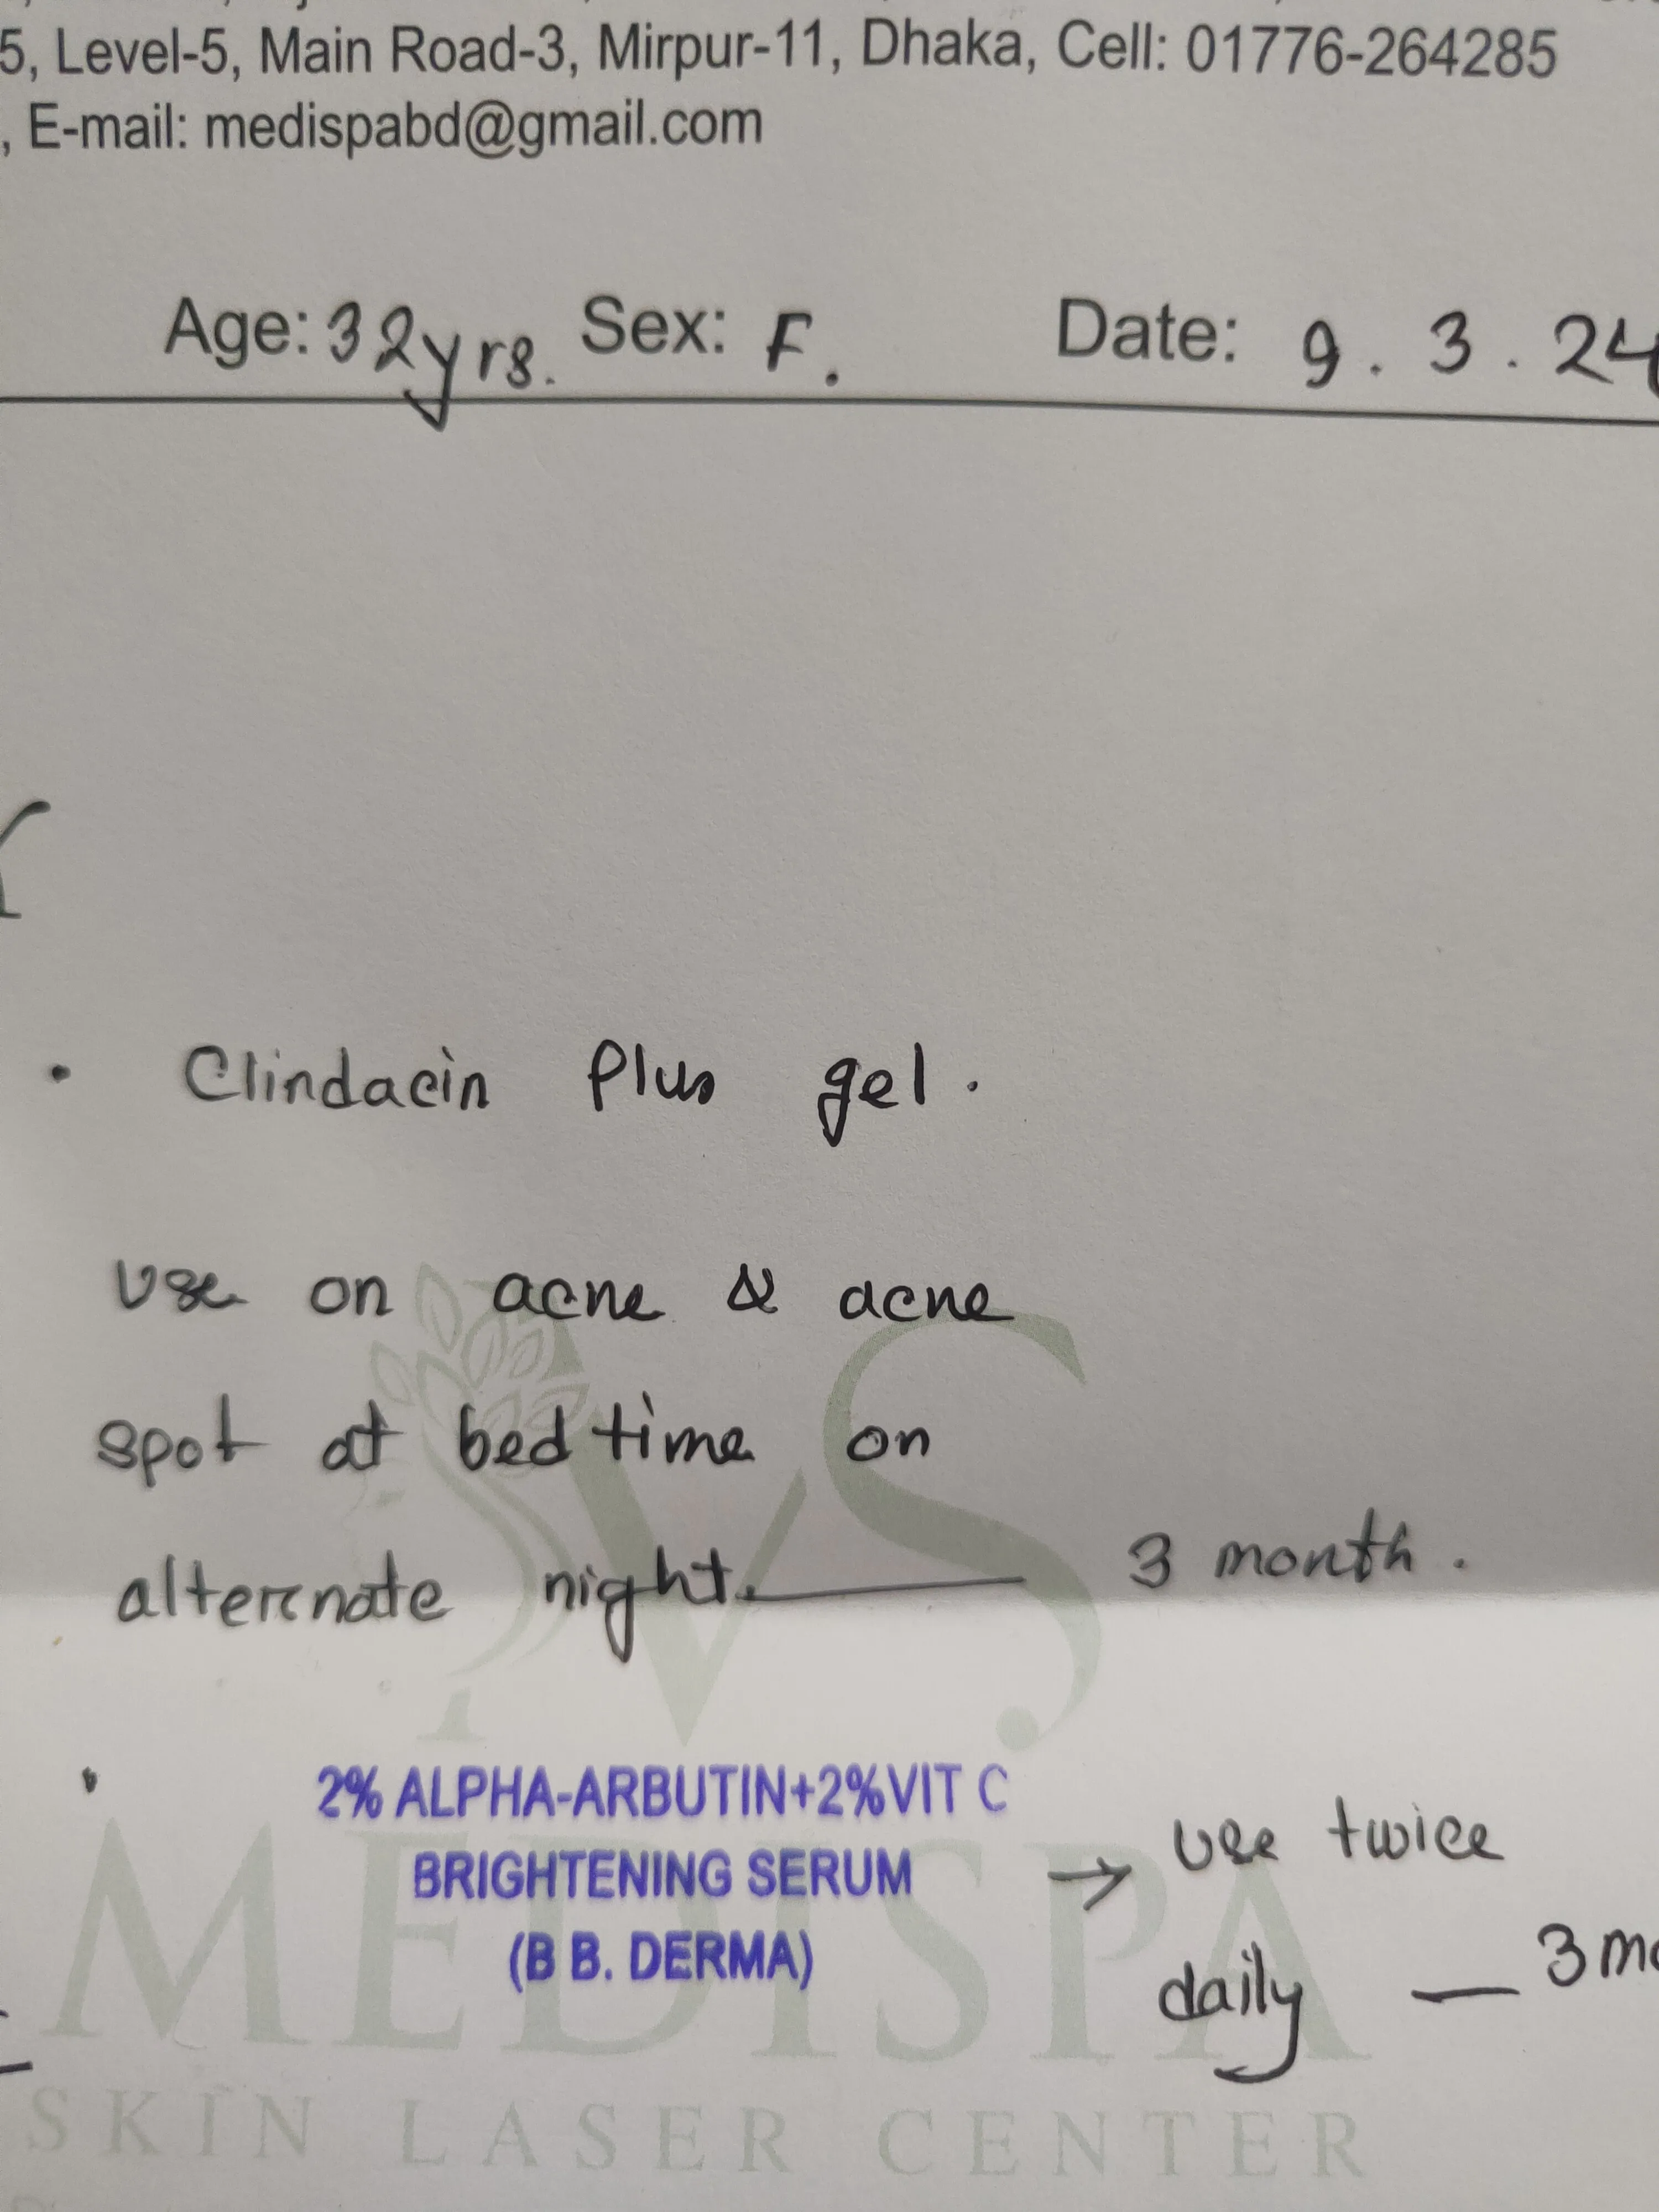 5, Level-5, Main Road-3, Mirpur-11, Dhaka, Cell: 01776-264285
, E-mail: medispabd@gmail.com
Age: 32yrs. Sex: F. Date: 9.3.24
• Clindacin Plus gel.
use on acne & acne
spot at bed time on
alternate night. — 3 month.
• 2% ALPHA-ARBUTIN+2%VIT C
BRIGHTENING SERUM
(B B. DERMA)
→ use twice
daily — 3 mo
VS
MEDISPA
SKIN LASER CENTER